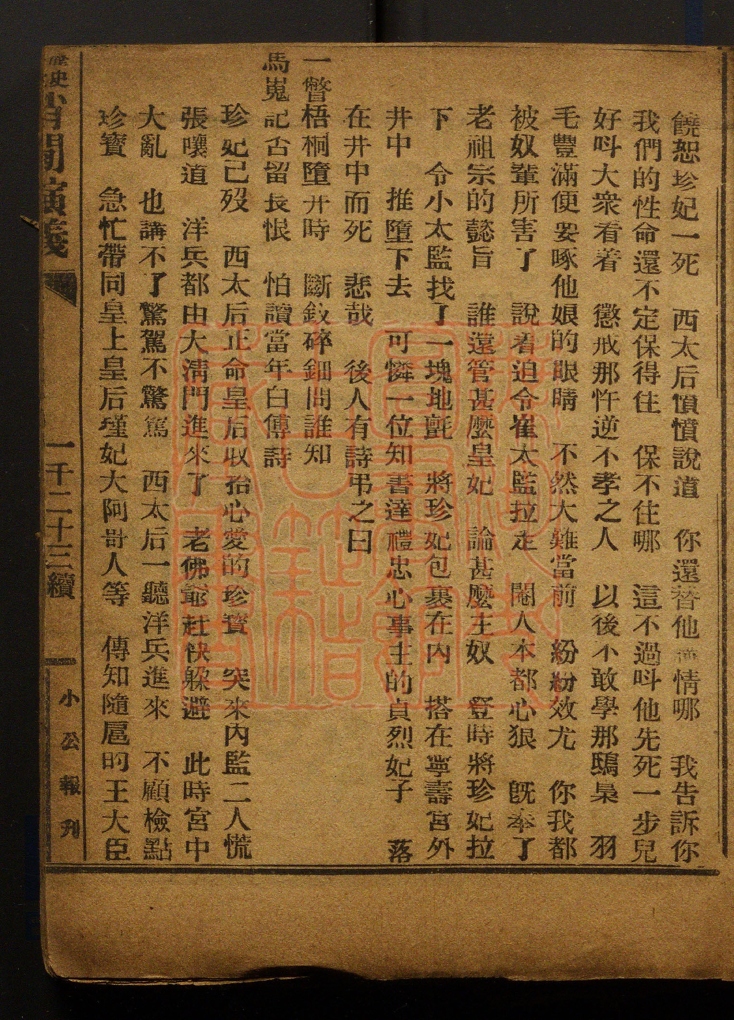 饒恕珍妃一死　西太后憤憤說道　你還替他講情哪　我告訴你
我們的性命還不定保得住　保不住哪　這不過呌他先死一步兒
好呌大衆看着　懲戒那忤逆不孝之人　以後不敢學那鴟梟　羽
毛豐滿便要啄他娘的眼睛　不然大難當前　紛紛效尤　你我都
被奴輩所害了　說着迫令崔太監拉走　閹人本都心狠　旣奉了
老祖宗的懿旨　誰還管甚麼皇妃　論甚麼主奴　登時將珍妃拉
下　令小太監找了一塊地氈　將珍妃包裹在內　搭在寧壽宮外
井中　推墮下去　可憐一位知書達禮忠心事主的貞烈妃子　落
在井中而死　悲哉　後人有詩弔之曰
一瞥梧桐墮井時　斷釵碎鈿問誰知
馬嵬記否留長恨　怕讀當年白傅詩
珍妃已歿　西太后正命皇后收拾心愛的珍寳　突來內監二人慌
張嚷道　洋兵都由大淸門進來了　老佛爺赶快躱避　此時宮中
大亂　也講不了驚駕不驚駕　西太后一聽洋兵進來　不顧檢點
珍寳　急忙帶同皇上皇后瑾妃大阿哥人等　傳知隨扈的王大臣
歷史淸閒演義
一千二十三續
小公報刋